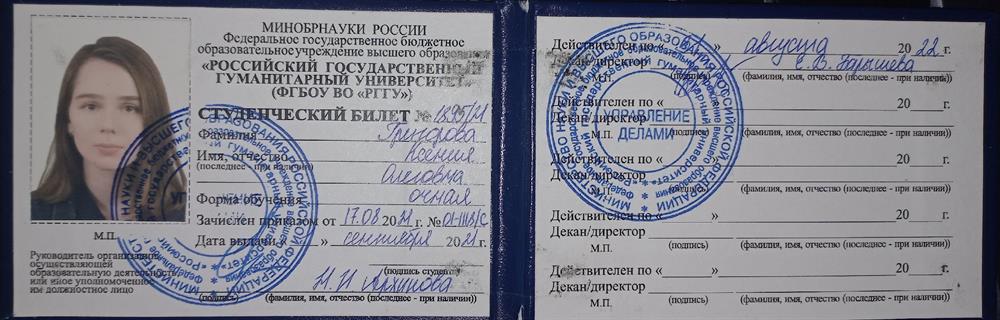 МИНОБРНАУКИ РОССИИ
Федеральное государственное бюджетное
образовательное учреждение высшего образования
«РОССИЙСКИЙ ГОСУДАРСТВЕННЫЙ
ГУМАНИТАРНЫЙ УНИВЕРСИТЕТ»
(ФГБОУ ВО «РГГУ»)
СТУДЕНЧЕСКИЙ БИЛЕТ №
Фамилия Григорова
Имя, отчество Ксения
(последнее - при наличии)
Олеговна
Форма обучения очная
Зачислен приказом от 17.08 2021 г. №
Дата выдачи « » сентября 2021 г.
М.П.
(подпись студента)
Руководитель организации,
осуществляющей
образовательную деятельность
или иное уполномоченное
им должностное лицо
Н.И. Архипова
(подпись) (фамилия, имя, отчество (последнее - при наличии))
Действителен по « » августа 2022 г.
Декан/директор
М.П. (подпись) (фамилия, имя, отчество (последнее - при наличии))
Действителен по « » 20 г.
Декан/директор
М.П. (подпись) (фамилия, имя, отчество (последнее - при наличии))
Действителен по « » 20 г.
Декан/директор
М.П. (подпись) (фамилия, имя, отчество (последнее - при наличии))
Действителен по « » 20 г.
Декан/директор
М.П. (подпись) (фамилия, имя, отчество (последнее - при наличии))
Действителен по « » 20 г.
Декан/директор
М.П. (подпись) (фамилия, имя, отчество (последнее - при наличии))
УПРАВЛЕНИЕ
ДЕЛАМИ